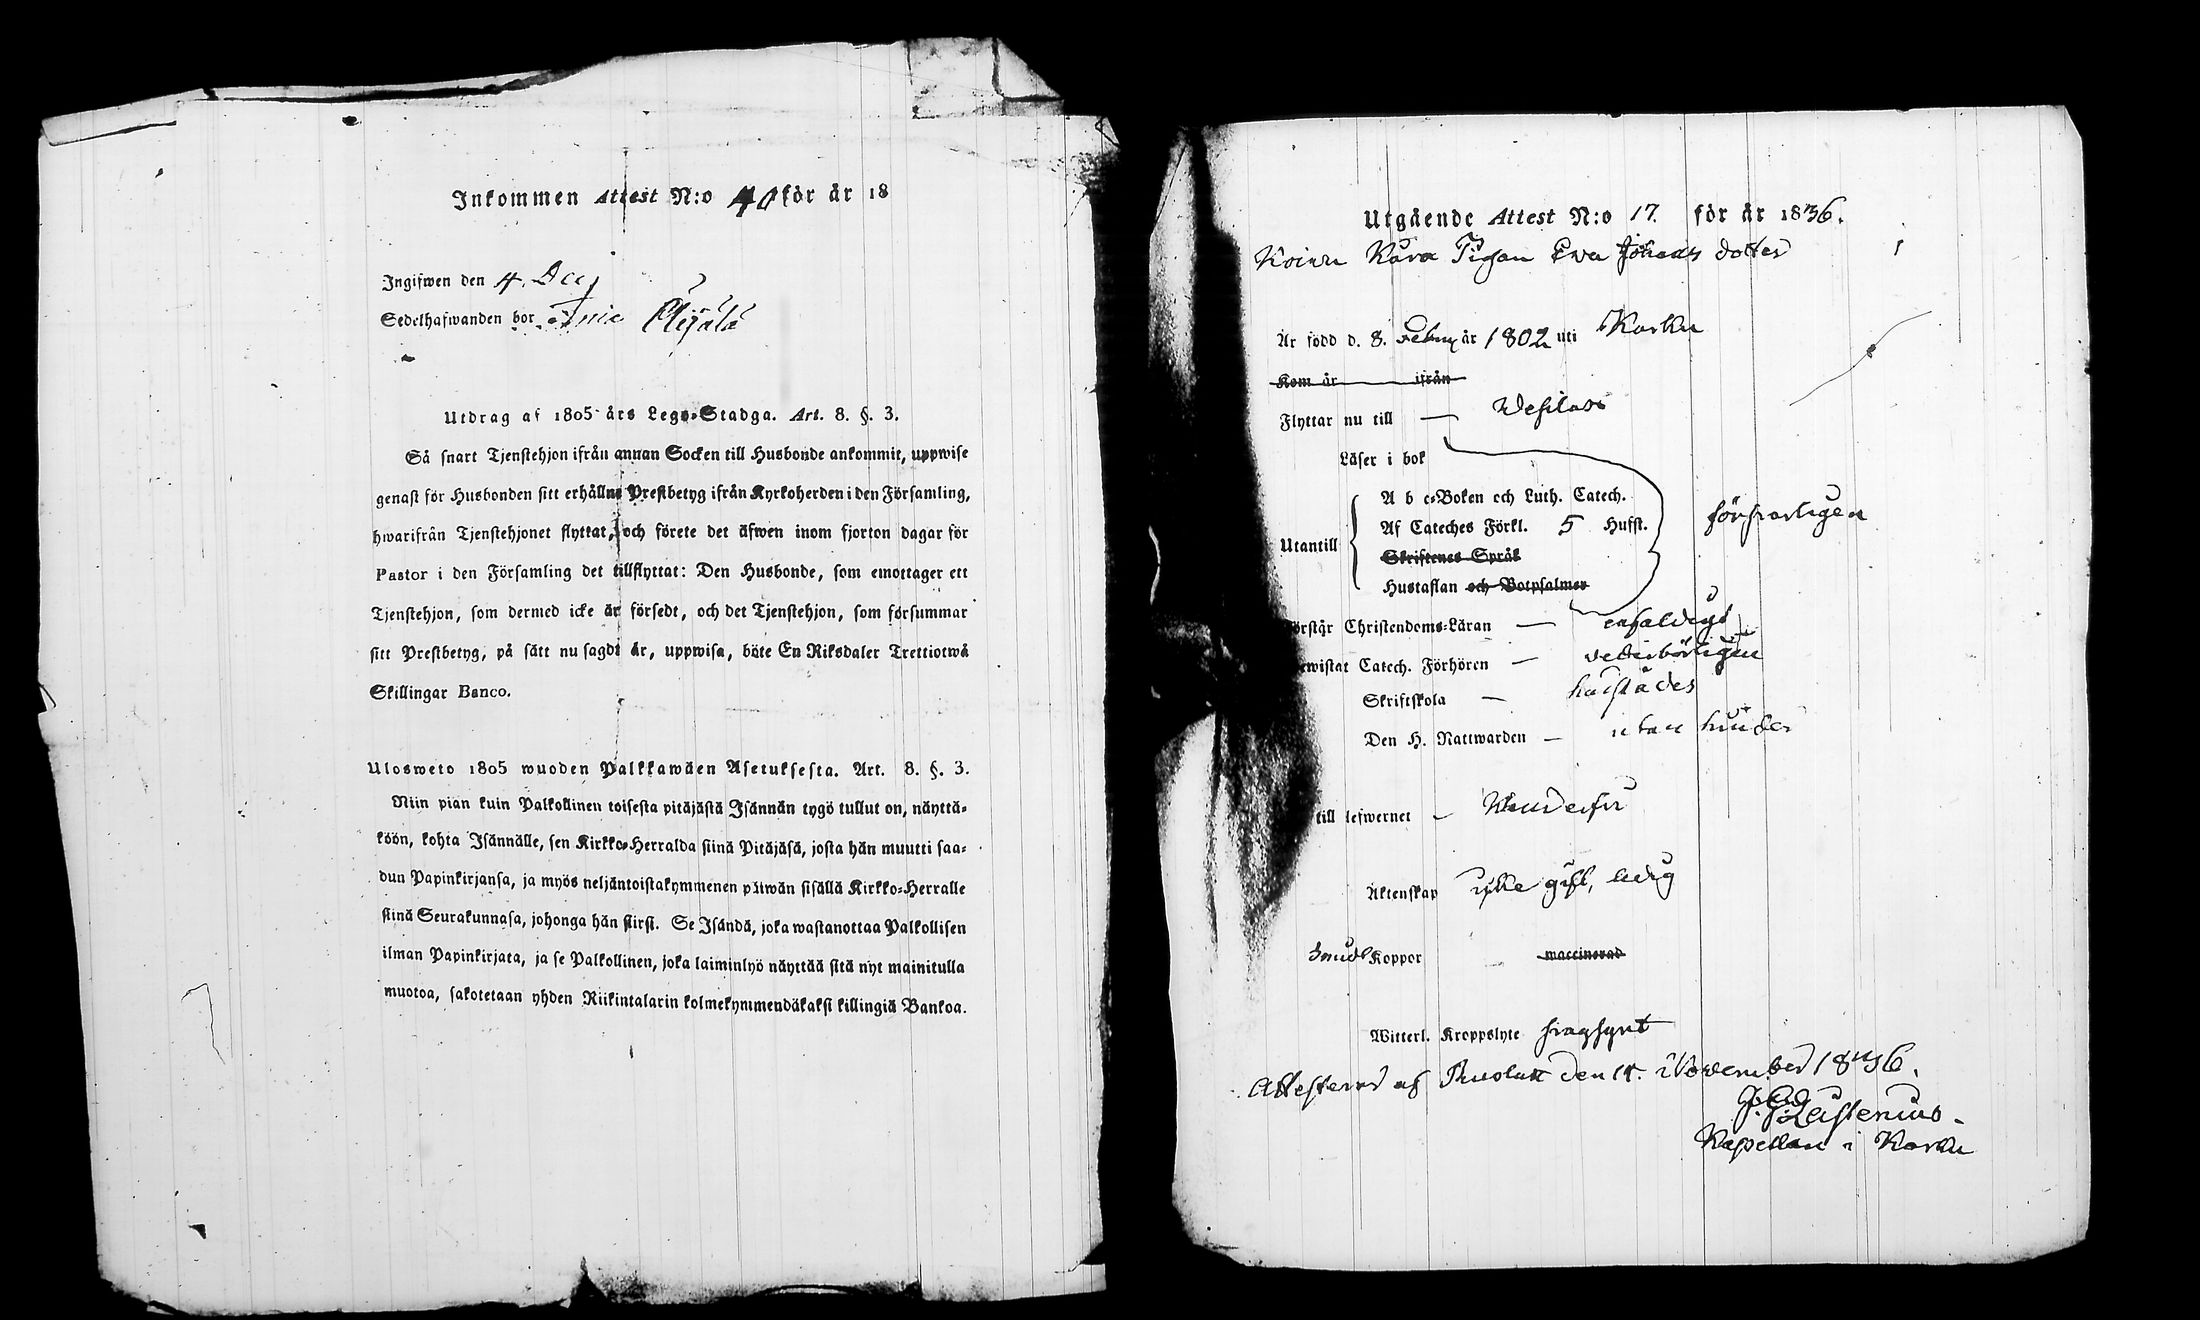 Inkommen Attest N:o 40 för år 18
Ingifwen den 4. Dec
Sedelhafwanden bor
Utdrag af 1805 års Lego-Stadga. Art. 8. §. 3.
Så snart Tjenstehjon ifrån annan Socken till Husbonde ankommit, uppwise
genast för Husbonden sitt erhållne Prestbetyg ifrån Kyrkoherden i den Församling,
hwarifrån Tjenstehjonet flyttat, och förete det äfwen inom fjorton dagar för
Pastor i den Församling det tillflyttat: Den Husbonde, som emottager ett
Tjenstehjon, som dermed icke är försedt, och det Tjenstehjon, som försummar
sitt Prestbetyg, på sätt nu sagdt är, uppwisa, böte En Riksdaler Trettiotwå
Skillingar Banco.
Ulosweto 1805 wuoden Palkkawäen Asetuksesta. Art. 8. §. 3.
Niin pian kuin Palkollinen toisesta pitäjästä Isännän tygö tullut on, näyttä-
köön, kohta Isännälle, sen Kirkko-Herralda siinä Pitäjäsä, josta hän muutti saa-
dun Papinkirjansa, ja myös neljäntoistakymmenen päiwän sisällä Kirkko-Herralle
siinä Seurakunnasa, johonga hän siirsi. Se Isändä, joka wastanottaa Palkollisen
ilman Papinkirjata, ja se Palkollinen, joka laiminlyö näyttää sitä nyt mainitulla
muotoa, sakotetaan yhden Riikintalarin kolmekymmendäkaksi killingiä Bankoa.
Utgående Attest N:o 17. för år 1836.
Pigan Ewa Johans dotter
Är född d. 8. Febru år 1802 uti Karku
Kom år ifrån
Flyttar nu till — Wesilax
Läser i bok
A b c-Boken och Luth. Catech.
Af Cateches Förkl. 5 Hufst. förswarligen
Utantill
Skriftenes Språk
Hustaflan och Botpsalmer
örstår Christendoms-Läran — enfaldigt
ewistat Catech. Förhören — wederbörligen
Skriftskola —
Den H. Nattwarden — utan hinder
till lefwernet —
Äktenskap icke gift, ledig
Koppor waccinerad
Witterl. Kroppslyte swagsynt
Attesterar af den November 1836.
Kapellan i Karku